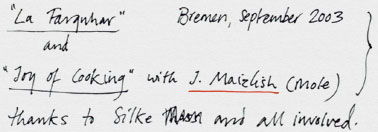 "La Farquhar" Bremen, September 2003
and
"Joy of Cooking" with J. Maizlish (Mole)
thanks to Silke and all involved.